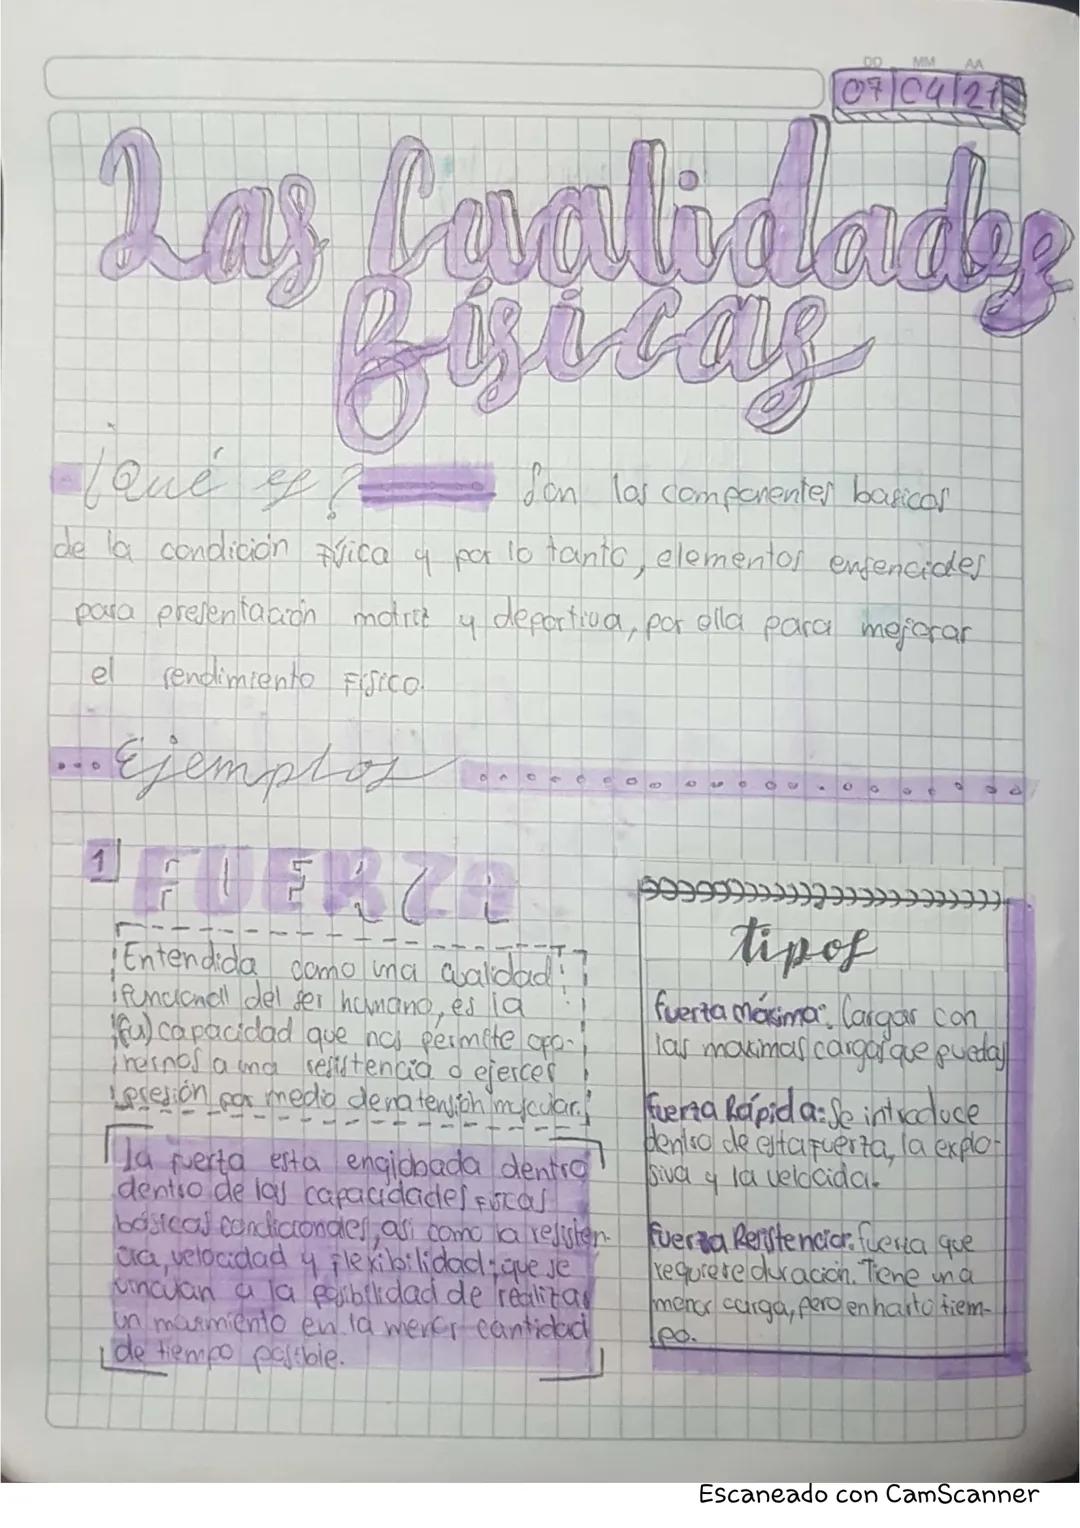 DD MM AA
07 04 21
Las Cualidades
Físicas
¿Qué es? Son los componentes basicos
de la condición Física y por lo tanto, elementos enfenciales
para presentación motriz y deportiva, por ella para mejorar
el rendimiento Físico.
Ejemplos
1 FUERZA
Entendida como una cualidad
funcional del ser humano, es la
(fu) capacidad que nos permite opo-
nernos a una resistencia o ejercer
presión por medio de na tensión muscular.
la fuerza esta englobada dentro
dentro de las capacidades Físicas
básicas condicionales, asi como la resisten-
cia, velocidad y flexibilidad; que se
vinculan a la posibilidad de realizar
un movimiento en la menor cantidad
de tiempo posible.
tipos
Fuerza máxima: Cargar con
las maximas cargas que puedas
Fuerza Rápida: Se introduce
dentro de esta Fuerza, la explo-
siva y la velocidad.
Fuerza Resistencia: fuerza que
requiere duración. Tiene una
menor carga, pero en harto tiem-
po.
Escaneado con CamScanner